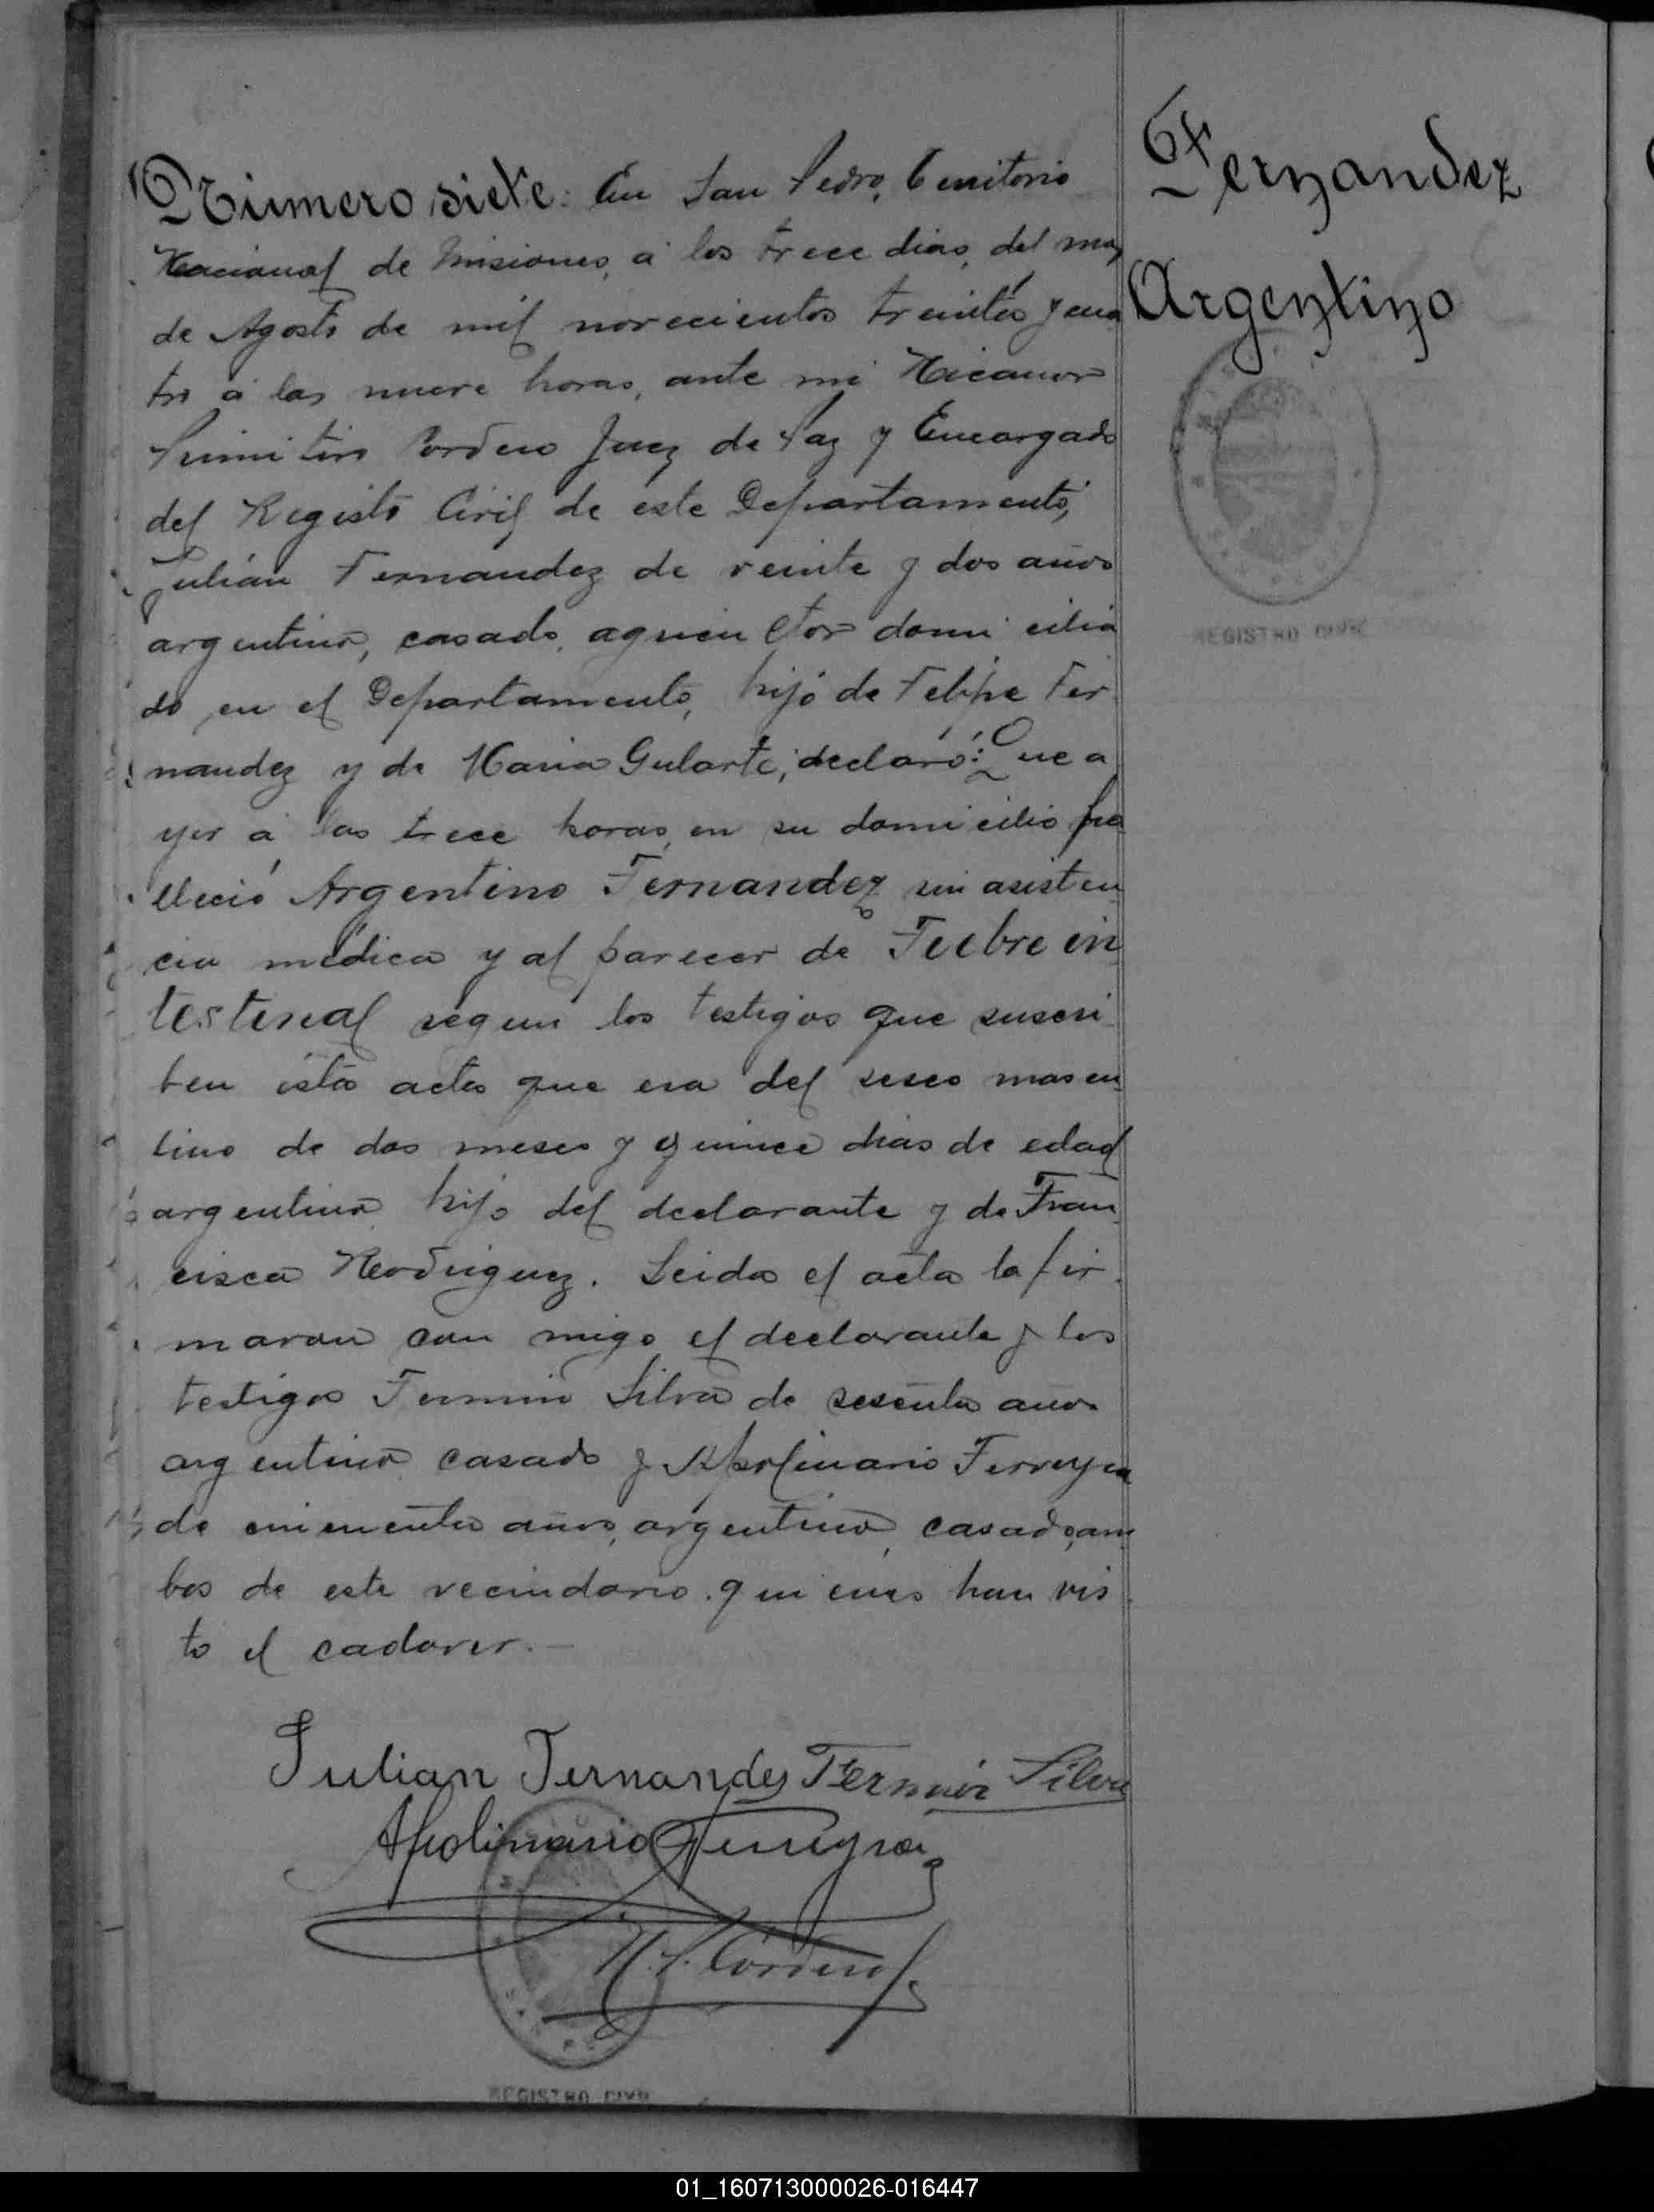 Número siete: En San Pedro, Territorio
Nacional de Misiones, a los trece dias, del mes
de Agosto de mil novecientos treinta y cua
tro á las nueve horas, ante mi Nicanor
Primitivo Cordero Juez de Paz y Encargado
del Registro Civil de este Departamento,
Julián Fernandez de veinte y dos años
argentino, casado, agricultor domicilia
do en el Departamento, hijo de Felipe Fer
nandez y de Maria Gularte, declaró: Que a
yer á las trece horas, en su domicilio fa
lleció Argentino Fernandez sin asisten
cia médica y al parecer de Fiebre in
testinal segun los testigos que suscri
ben ésta acta que era del sexo mascu
lino de dos meses y quince dias de edad
argentino hijo del declarante y de Fran
cisca Rodriguez. Leida el acta la fir
maron con migo el declarante y los
testigos Fermin Silva de sesenta años
argentino casado y Apolinario Ferreyra
de cincuenta años, argentino, casado, am
bos de este vecindario quienes han vis
to el cadaver.—
Julian Fernandes Fermin Silva
Apolinario Ferreyra
N. P. Cordero
REGISTRO CIVIL
Fernandez
Argentino
REGISTRO CIVIL
01_160713000026-016447